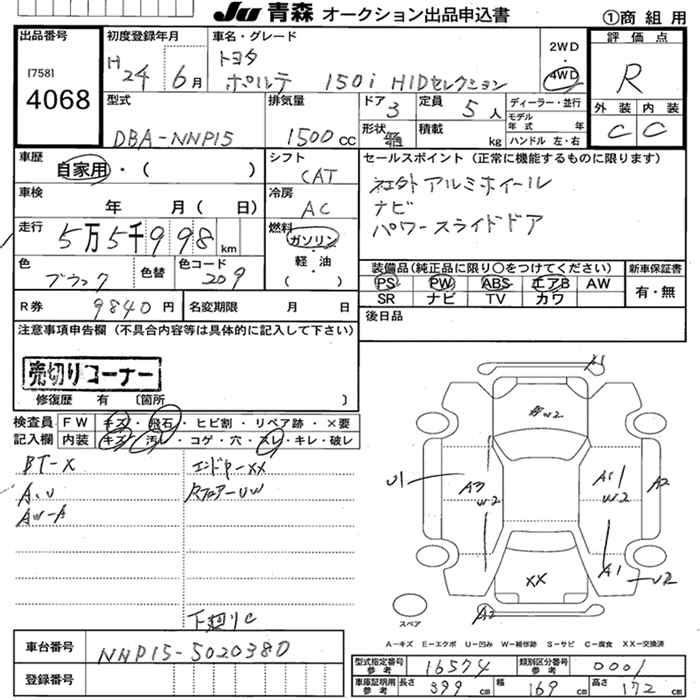 JU 青森 オークション出品申込書 ①商組用
出品番号 初度登録年月 車名・グレード 評価点
[758]
4068
H24 6月
トヨタ
ポルテ 150i HIDセレクション
2WD
4WD
R
型式 排気量 ドア 定員 ディーラー・並行 外装 内装
DBA-NNP15 1500cc 3 5人
モデル
年式 年
形状 積載 kg ハンドル 左・右
C C
車歴 シフト セールスポイント(正常に機能するものに限ります)
自家用・( ) CAT
社外アルミホイール
ナビ
パワースライドドア
車検 年 月( 日) 冷房 AC
走行 5万5千998km 燃料
ガソリン
軽・油
( )
色 ブラック 色替 色コード 209
装備品(純正品に限り○をつけてください) 新車保証書
PS PW ABS エアB AW 有・無
SR ナビ TV カワ
R券 9840円 名変期限 月 日
後日品
注意事項申告欄(不具合内容等は具体的に記入して下さい)
売切りコーナー
修復歴 有 〔箇所 〕
検査員 FW キズ・飛石・ヒビ割・リペア跡・×要
記入欄 内装 キズ・汚レ・コゲ・穴・スレ・キレ・破レ
BT-X エンドP-XX
A、U RフロアーUW
AW-A
下廻りC
A1
W2
U1 A3 W2 A1 W2 A2
XX A1 W2
A2
スペア
A-キズ E-エクボ U-凹み W-補修跡 S-サビ C-腐食 XX-交換済
車台番号 NNP15-5020380
登録番号
型式指定番号 参考 16574 類別区分番号 参考 0001
車庫証明用 参考 長さ 399cm 幅 169cm 高さ 172cm